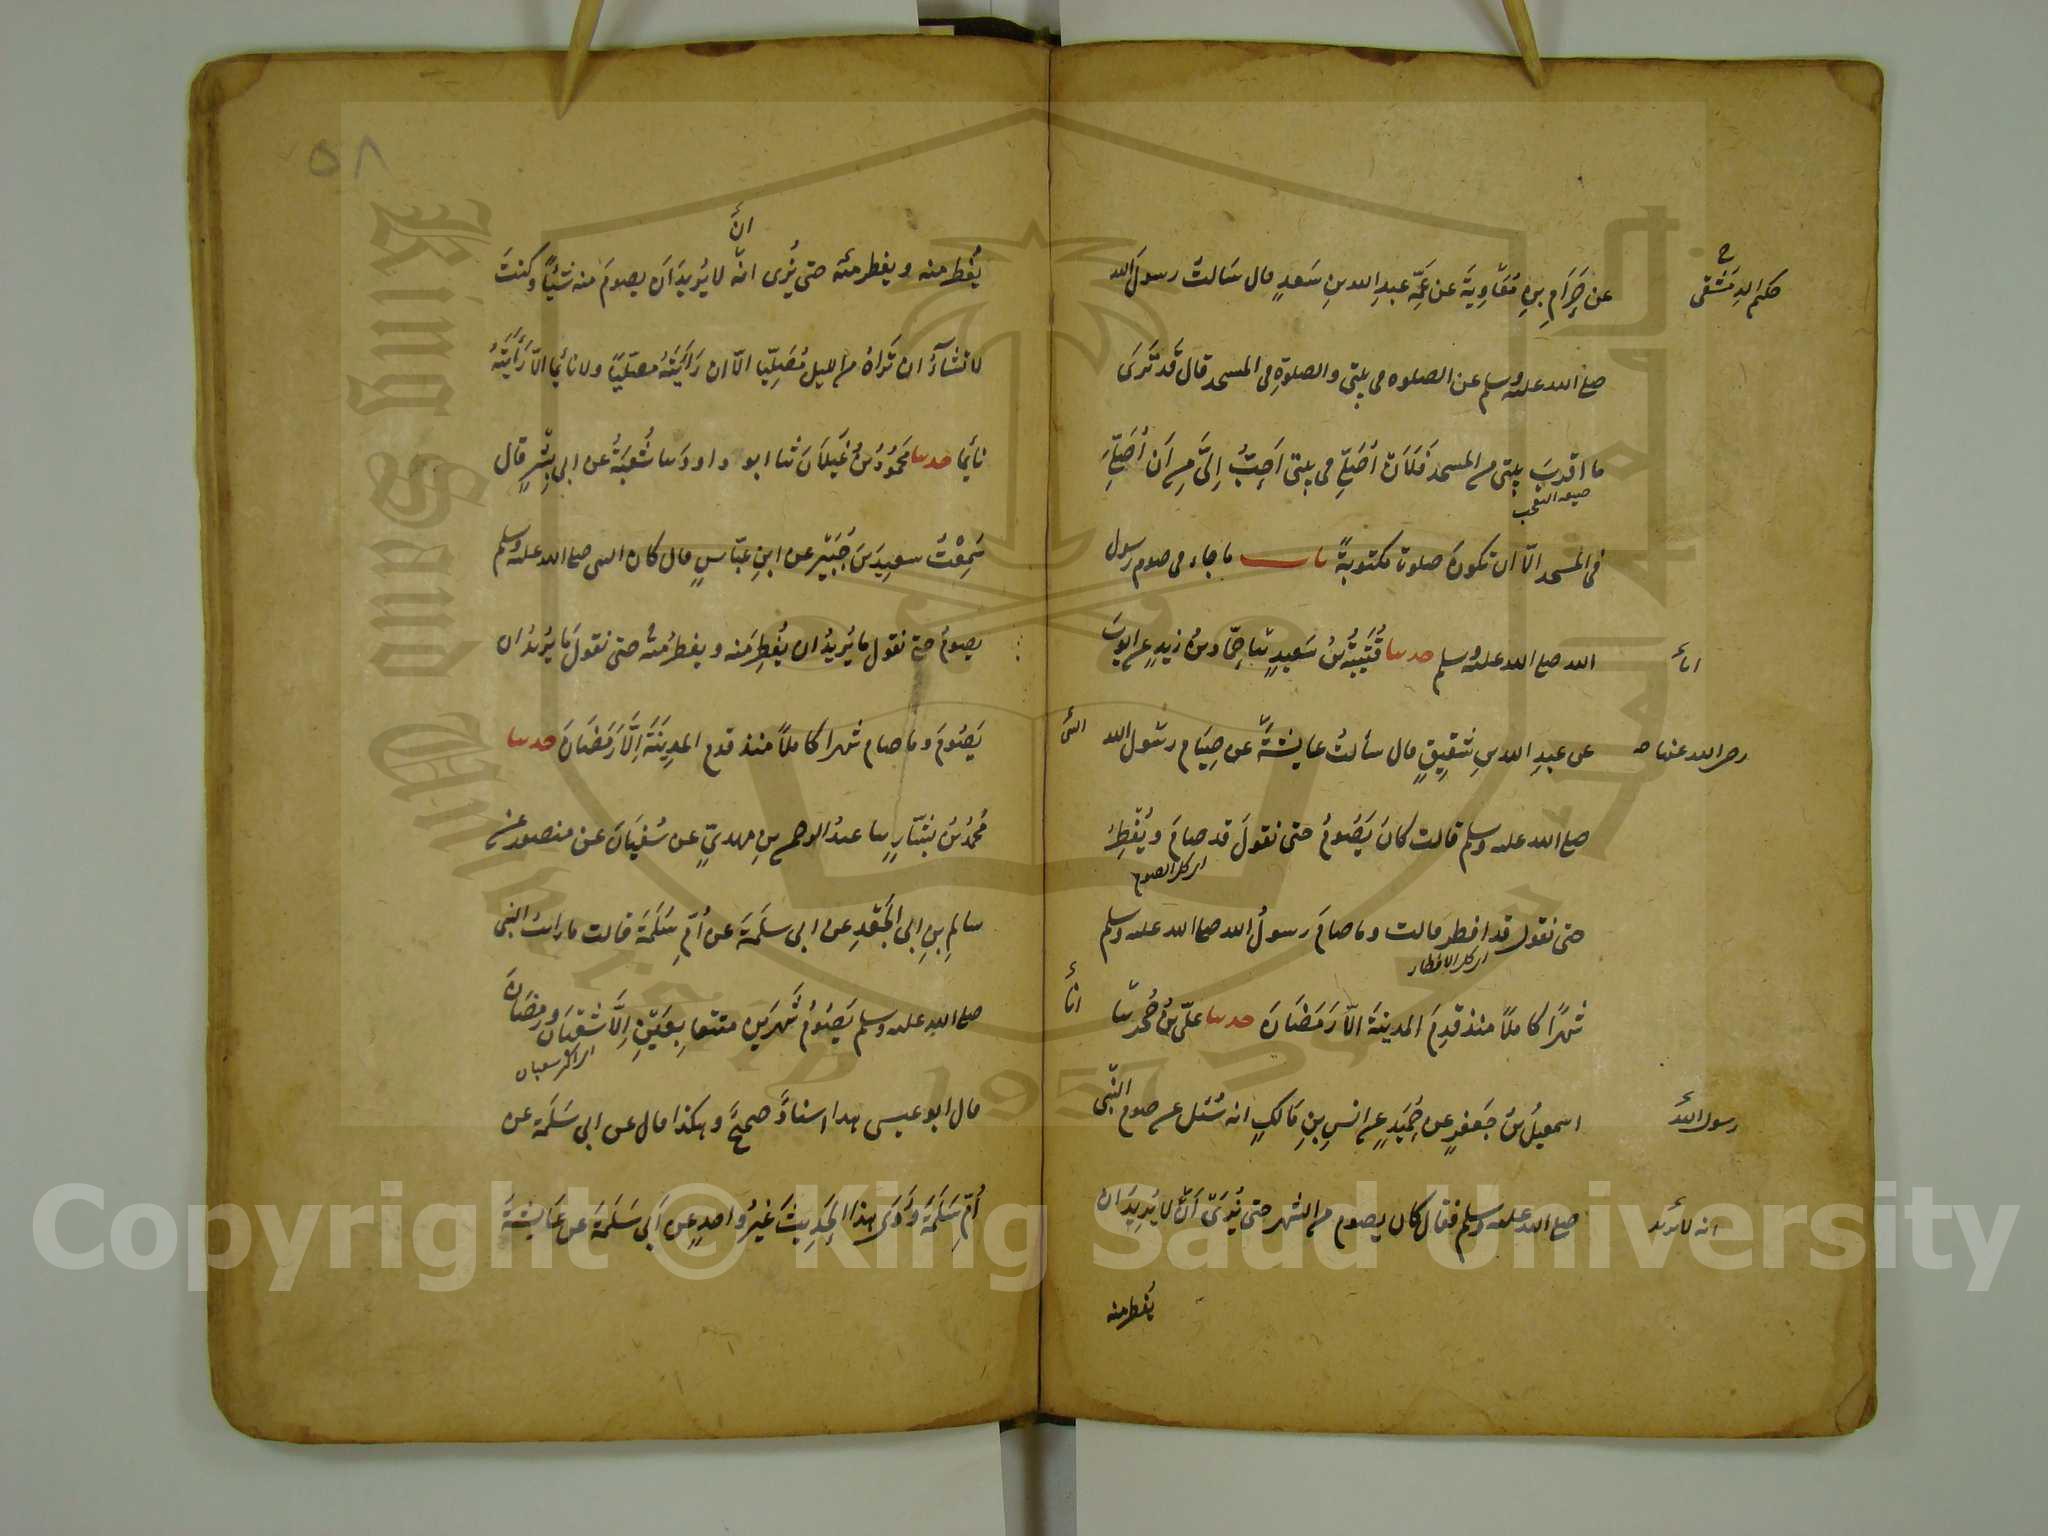 عن حَرَامِ بنِ مُعَاوِيَةَ عن عَمِّه عبدِ الله بنِ سَعدٍ قال سَالتُ رسولَ الله
حكيم الدمشقى
صلى الله عليه وسلم عن الصلوة فى بيتى والصلوةِ فى المسجد قال قَد تَرَى
ما اقربَ بيتى من المسجد فَلَاَن اُصَلِّىَ فى بيتى اَحَبُّ اِلىَّ مِن اَن اُصَلِّىَ
صيغه التعجب
فى المسجد الّا ان تكونَ صلوة مكتوبةً باب ما جاء فى صوم رسول
الله صلى الله عليه وسلم حدثنا قُتَيبَةُ بنُ سَعيدٍ ثنا حمّاد بنُ زيدٍ عن ايوبَ
انا
عن عبدِ الله بنِ شَقِيقٍ قال سألتُ عايشَةَ عن صِيَام رسُول الله
رضى الله عنها صح
النبى
صلى الله عليه وسلم قالت كانَ يَصُومُ حتى نقولَ قد صامَ ويُفْطِرُ
اى كل الصوم
حتى نقول قد افطر قالت وما صامَ رسولُ الله صلى الله عليه وسلم
اى كل الافطار
شهرًا كاملًا منذ قدِمَ المدينةَ الّا رَمَضَانَ حدثنا علىّ بنُ حُجر ثنا
انا
اسمعيلُ بنُ جَعفرٍ عن حُمَيدٍ عن انسِ بنِ مَالكٍ انه سُئل عن صوم النّبى
رسول الله
صلى الله عليه وسلم فقال كان يصوم من الشهر حتى نُرَىّ اَنّ لا يُرِيدَ ان
انه لا يريد
يُفطر منه
٥٨
يُفطر منه ويفطر منه حتى نُرى انّه لا يُريدُ اَن يصومَ منه شيئًا وكنتَ
انَّ
لا تشآءُ ان تَرَاهُ من الليل مُصَلِّيًا الّا ان رَايَتَهُ مصلّيًا ولا نائمًا الّا رَاَيتَهُ
نائمًا حدثنا مَحمُودُ بنُ غَيلَانَ ثنا ابو داود ثنا شُعْبَةُ عن ابى بِشْرٍ قال
سَمِعْتُ سعيدَ بنَ جُبَيْر عن ابنِ عبّاسٍ قال كان النبى صلى الله عليه وسلم
يصومُ حتى نقول ما يُريدُ ان يُفْطِرَ منه ويفطرُ منه حتى نقولَ ما يُريدُ ان
يَصُومَ وما صام شهرا كاملًا منذ قدم المدِينَةَ اِلَّا رَمَضَانَ حدثنا
مُحمّدُ بنُ بشّارٍ ثنا عبدُ الرحمن بنِ مهدىّ عن سُفيَانَ عن منصور عن
سالمِ بنِ ابى الجَعْدِ عن ابى سلَمَةَ عن اُمّ سَلَمَةَ قالت ما رايت النبى
صلى الله عليه وسلم يَصُومُ شَهرَين متتابِعَيْنِ اِلَّا شَعْبَانَ ورمضَانَ
اى اكثر شعبان
قال ابو عيسى هذا اسنادٌ صحيحٌ وهكذا قال عن ابى سَلَمَة عن
اُمّ سَلَمَةَ وَرَوَى هذا الحَدِيثَ غيرُ واحدٍ عن اَبى سَلَمَةَ عن عَايشَةَ
Copyright © King Saud University
King Saud University
1957